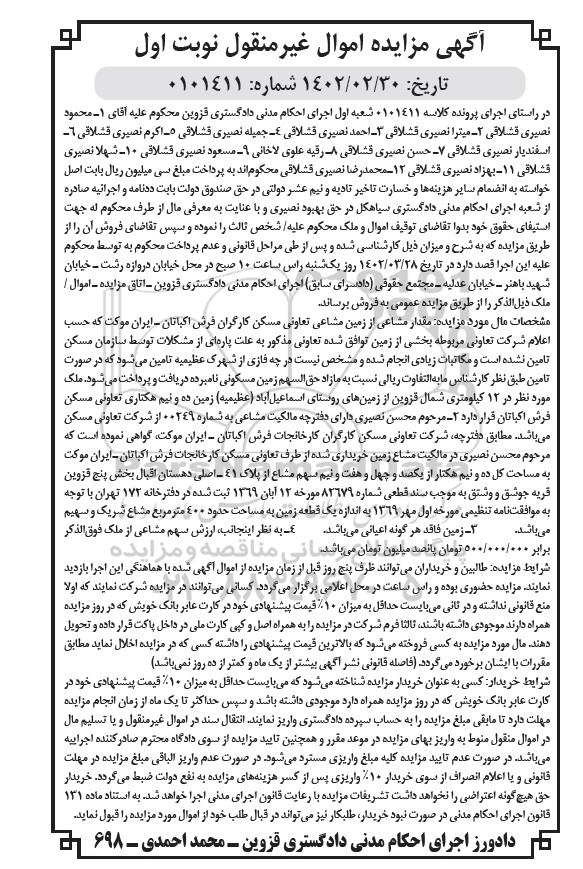 آگهی مزایده اموال غیرمنقول نوبت اول
تاریخ: ۱۴۰۲/۰۲/۳۰ شماره: ۰۱۰۱۴۱۱
در راستای اجرای پرونده کلاسه ۰۱۰۱۴۱۱ شعبه اول اجرای احکام مدنی دادگستری قزوین محکوم علیه آقای ۱ـ محمود
نصیری قشلاقی ۲ـ میترا نصیری قشلاقی ۳ـ احمد نصیری قشلاقی ۴ـ جمیله نصیری قشلاقی ۵ـ اکرم نصیری قشلاقی ۶ـ
اسفندیار نصیری قشلاقی ۷ـ حسن نصیری قشلاقی ۸ـ رقیه علوی لاخانی ۹ـ مسعود نصیری قشلاقی ۱۰ـ شهلا نصیری
قشلاقی ۱۱ـ بهزاد نصیری قشلاقی ۱۲ـ محمدرضا نصیری قشلاقی محکوم‌اند به پرداخت مبلغ سی میلیون ریال بابت اصل
خواسته به انضمام سایر هزینه‌ها و خسارت تاخیر تادیه و نیم عشر دولتی در حق صندوق دولت بابت ددنامه و اجرائیه صادره
از شعبه اجرای احکام مدنی دادگستری سیاهکل در حق بهبود نصیری و با عنایت به معرفی مال از طرف محکوم له جهت
استیفای حقوق خود بدوا تقاضای توقیف اموال و ملک محکوم علیه/ شخص ثالث را نموده و سپس تقاضای فروش آن را از
طریق مزایده که به شرح و میزان ذیل کارشناسی شده و پس از طی مراحل قانونی و عدم پرداخت محکوم به توسط محکوم
علیه این اجرا قصد دارد در تاریخ ۱۴۰۲/۰۳/۲۸ روز یکشنبه راس ساعت ۱۰ صبح در محل خیابان دروازه رشت ـ خیابان
شهید باهنر ـ خیابان عدلیه ـ مجتمع حقوقی (دادسرای سابق) اجرای احکام مدنی دادگستری قزوین ـ اتاق مزایده ـ اموال /
ملک ذیل‌الذکر را از طریق مزایده عمومی به فروش برساند.
مشخصات مال مورد مزایده: مقدار مشاعی از زمین مشاعی تعاونی مسکن کارگران فرش اکباتان ـ ایران موکت که حسب
اعلام شرکت تعاونی مربوطه بخشی از زمین توافق شده تعاونی مذکور به علت پاره‌ای از مشکلات توسط سازمان مسکن
تامین نشده است و مکاتبات زیادی انجام شده و مشخص نیست در چه فازی از شهرک عظیمیه تامین می‌شود که در صورت
تامین طبق نظر کارشناس مابه‌التفاوت ریالی نسبت به مازاد حق‌السهم زمین مسکونی نامبرده دریافت و پرداخت می‌شود. ملک
مورد نظر در ۱۲ کیلومتری شمال قزوین از زمین‌های روستای اسماعیل‌آباد (عظیمیه) زمین ده و نیم هکتاری تعاونی مسکن
فرش اکباتان قرار دارد ۲ـ مرحوم محسن نصیری دارای دفترچه مالکیت مشاعی به شماره ۰۰۲۴۹ از شرکت تعاونی مسکن
می‌باشد. مطابق دفترچه، شرکت تعاونی مسکن کارگران کارخانجات فرش اکباتان ـ ایران موکت، گواهی نموده است که
مرحوم محسن نصیری در مالکیت مشاع زمین خریداری شده از طرف تعاونی مسکن کارخانجات فرش اکباتان ـ ایران موکت
به مساحت کل ده و نیم هکتار از یکصد و چهل و هفت و نیم سهم مشاع از پلاک ۴۱ ـ اصلی دهستان اقبال بخش پنج قزوین
قریه جوشق و وشتق به موجب سند قطعی شماره ۸۲۶۷۹ مورخه ۱۲ آبان ۱۳۶۹ ثبت شده در دفترخانه ۱۷۲ تهران با توجه
به موافقت‌نامه تنظیمی مورخه اول مهر ۱۳۶۹ به اندازه یک قطعه زمین به مساحت حدود ۴۰۰ مترمربع مشاع شریک و سهیم
می‌باشد. ۳ـ زمین فاقد هر گونه اعیانی می‌باشد. ۴ـ به نظر اینجانب، ارزش سهم مشاعی از ملک فوق‌الذکر
برابر ۵۰۰/۰۰۰/۰۰۰ تومان پانصد میلیون تومان می‌باشد.
شرایط مزایده: طالبین و خریداران می‌توانند ظرف پنج روز قبل از زمان مزایده از اموال آگهی شده با هماهنگی این اجرا بازدید
نمایند. مزایده حضوری بوده و راس ساعت در محل اعلامی برگزار می‌گردد. کسانی می‌توانند در مزایده شرکت نمایند که اولا
منع قانونی نداشته و در ثانی می‌بایست حداقل به میزان ۱۰٪ قیمت پیشنهادی خود در کارت عابر بانک خویش که در روز مزایده
همراه دارند موجودی داشته باشند، ثالثا فرم شرکت در مزایده را به همراه اصل و کپی کارت ملی در داخل پاکت قرار داده و تحویل
دهند. مال مورد مزایده به کسی فروخته می‌شود که بالاترین قیمت پیشنهادی را داشته کسی که در مزایده اخلال نماید مطابق
مقررات با ایشان برخورد می‌گردد. (فاصله قانونی نشر آگهی بیشتر از یک ماه و کمتر از ده روز نمی‌باشد)
شرایط خریدار: کسی به عنوان خریدار مزایده شناخته می‌شود که می‌بایست حداقل به میزان ۱۰٪ قیمت پیشنهادی خود در
کارت عابر بانک خویش که در روز مزایده همراه دارد موجودی داشته باشد و سپس حداکثر تا یک ماه از زمان انجام مزایده
مهلت دارد تا مابقی مبلغ مزایده را به حساب سپرده دادگستری واریز نمایند. انتقال سند در اموال غیرمنقول و یا تسلیم مال
در اموال منقول منوط به واریز بهای مزایده در موعد مقرر و همچنین تایید مزایده از سوی دادگاه محترم صادرکننده اجراییه
می‌باشد. در صورت عدم تایید مزایده کلیه مبلغ واریزی مسترد می‌شود. در صورت عدم واریز الباقی مبلغ مزایده در مهلت
قانونی و یا اعلام انصراف از سوی خریدار ۱۰٪ واریزی پس از کسر هزینه‌های مزایده به نفع دولت ضبط می‌گردد. خریدار
حق هیچ‌گونه اعتراضی را نخواهد داشت تشریفات مزایده با رعایت قانون اجرای مدنی اجرا خواهد شد. به استناد ماده ۱۳۱
قانون اجرای احکام مدنی در صورت نبود خریدار، طلبکار نیز می‌تواند در قبال طلب خود از اموال مورد مزایده را قبول نماید.
دادورز اجرای احکام مدنی دادگستری قزوین ـ محمد احمدی ـ ۶۹۸